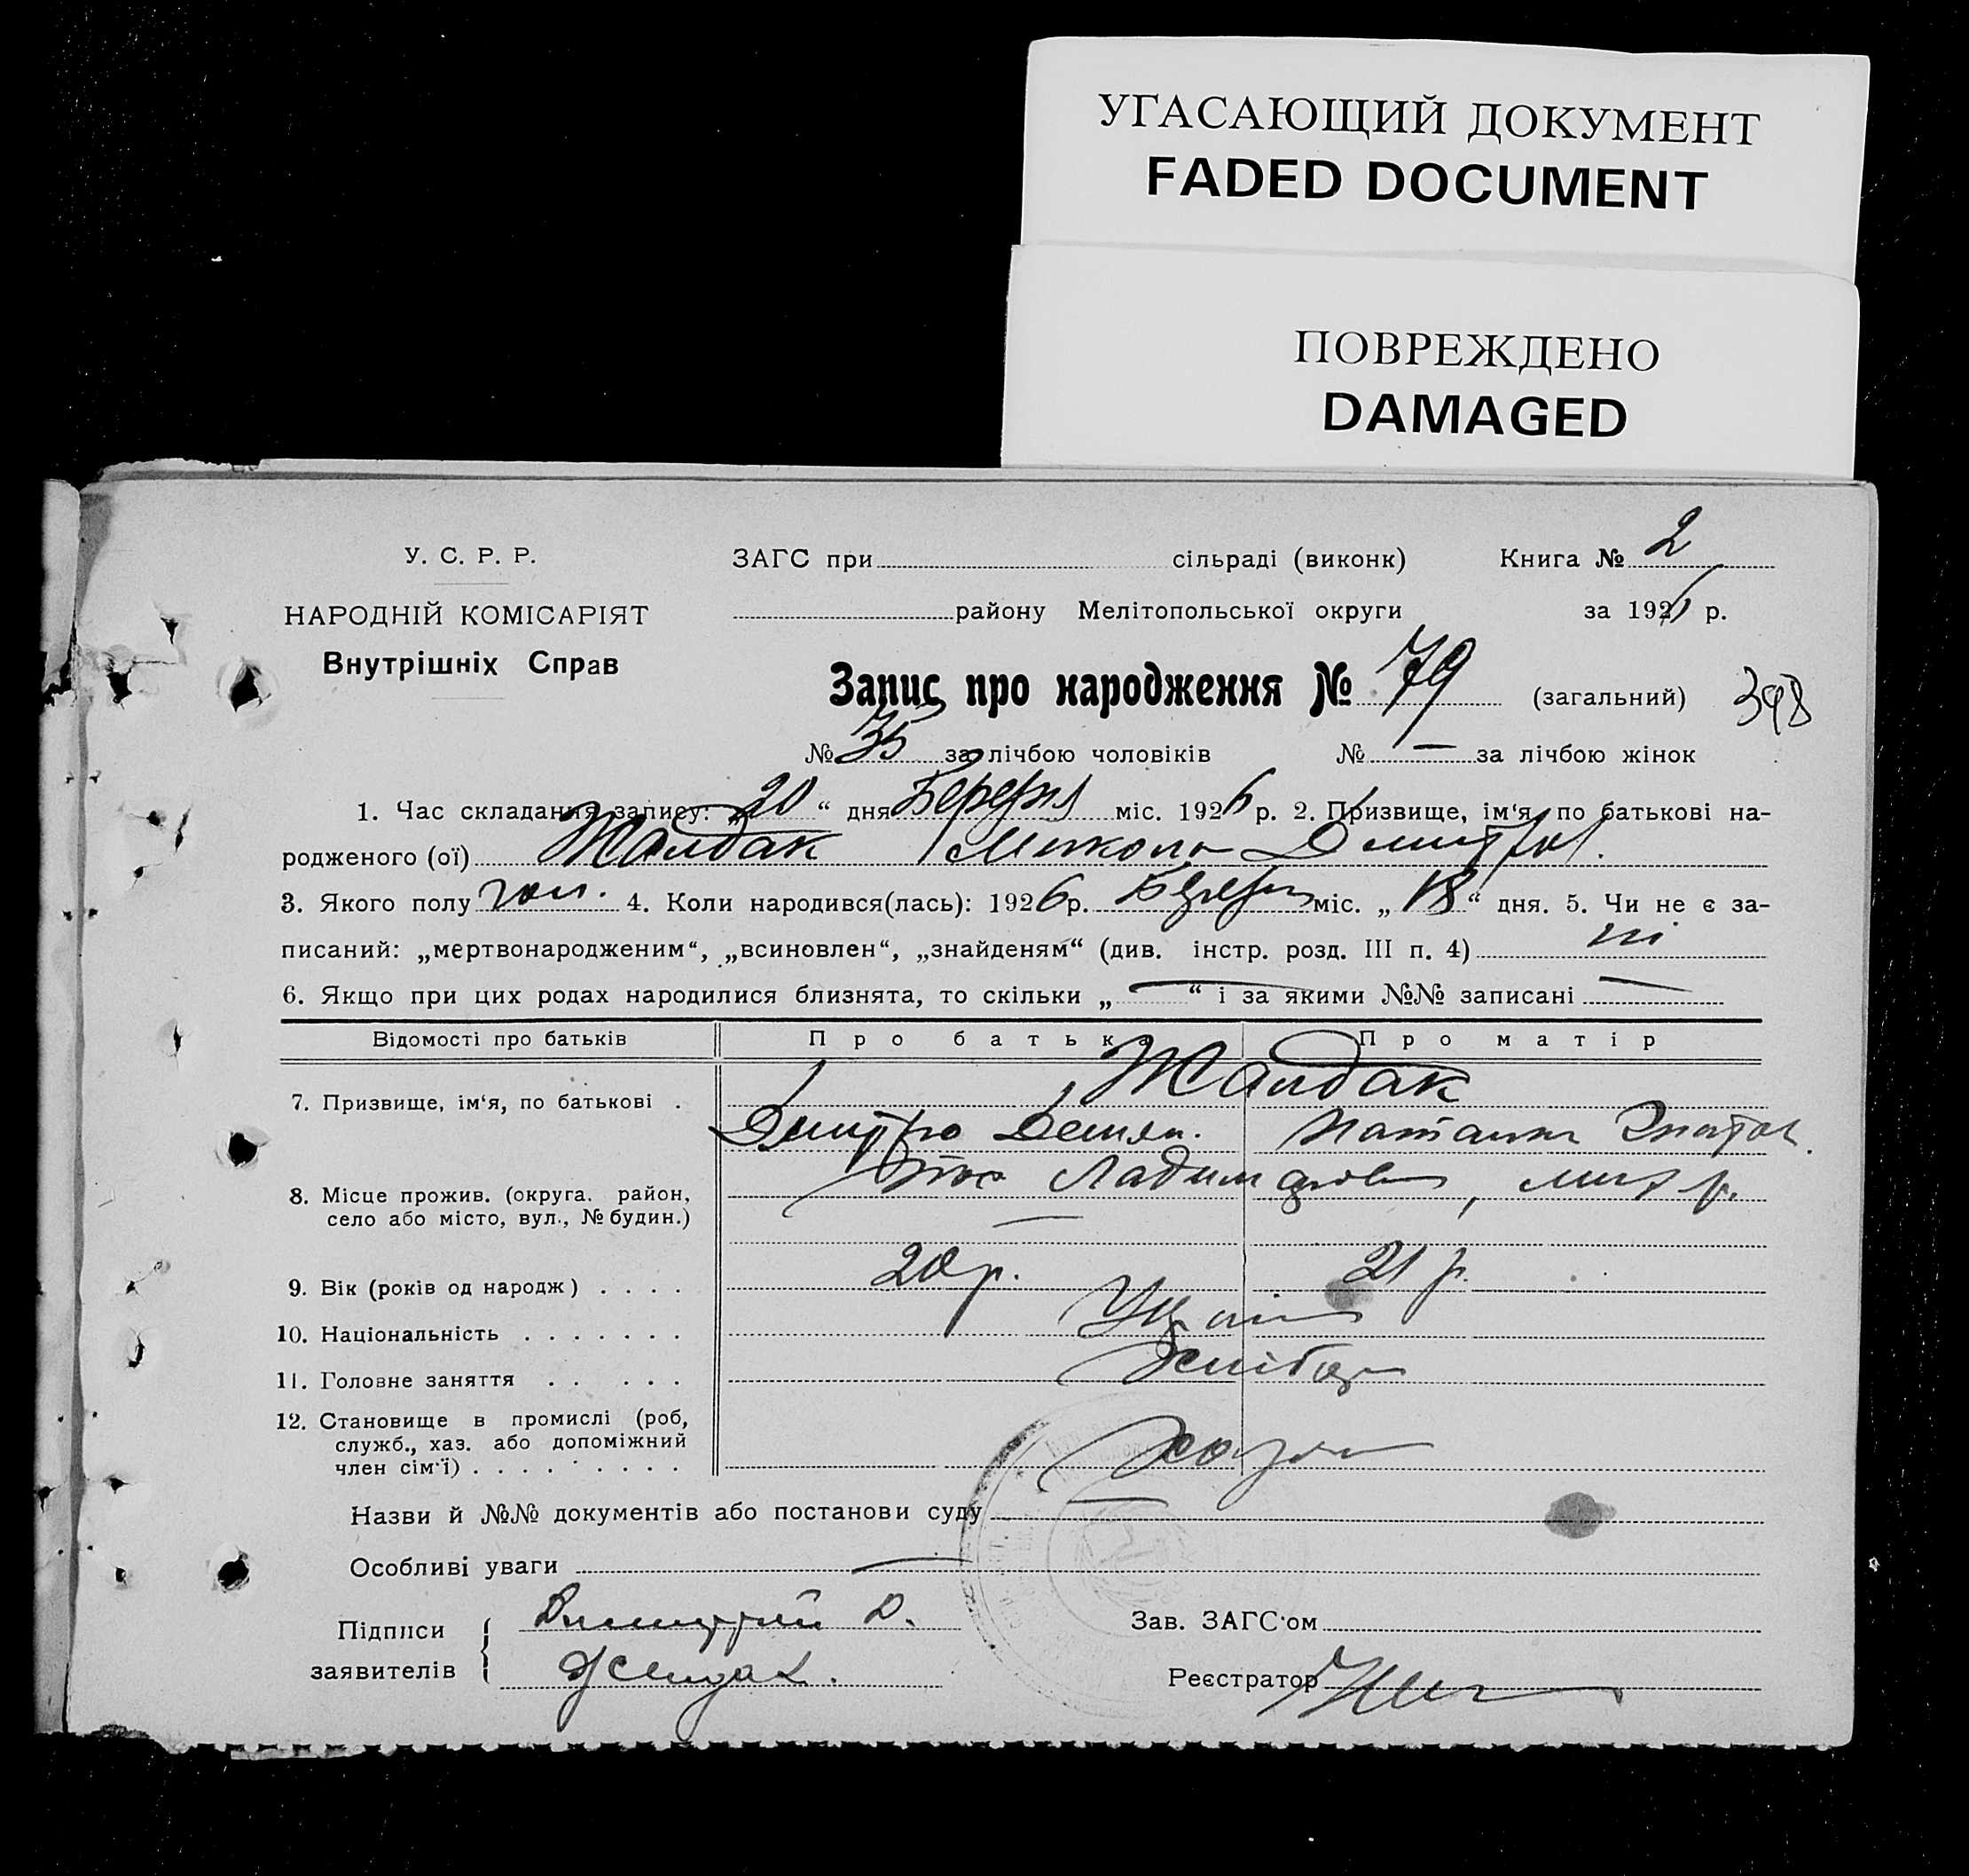 УГАСАЮЩИЙ ДОКУМЕНТ
FADED DOCUMENT
ПОВРЕЖДЕНО
DAMAGED
У. С. Р. Р.
НАРОДНІЙ КОМІСАРІЯТ
Внутрішніх Справ
ЗАГС при сільраді (виконк) Книга № 2
району Мелітопольської округи за 1926 р.
Запис про народження № 79 (загальний) 398
№ 35 за лічбою чоловіків № — за лічбою жінок
1. Час складання запису: „20“ дня Березня міс. 1926 р. 2. Призвище, ім‘я, по батькові на-
родженого (ої) Жалдак Микола Дмитров.
3. Якого полу чол. 4. Коли народився(лась): 1926 р. Березня міс. „18“ дня. 5. Чи не є за-
писаний: „мертвонародженим“, „всиновлен“, „знайденям“ (див. інстр. розд. III п. 4) ні
6. Якщо при цих родах народилися близнята, то скільки „—“ і за якими №№ записані —
Відомості про батьків Про батька Про матір
7. Призвище, ім‘я, по батькові . Жалдак
Дмитро Демян. Наталка
8. Місце прожив. (округа. район,
село або місто, вул., № будин.)
9. Вік (років од народж) . . . . 20 р. 21 р.
10. Національність . . . . . . .
11. Головне заняття . . . . .
12. Становище в промислі (роб,
служб., хаз. або допоміжний
член сім‘ї) . . . . . . . . .
Назви й №№ документів або постанови суду —
Особливі уваги —
Підписи
заявителів
Дмитрий Д.
Жалдак.
Зав. ЗАГС‘ом
Реєстратор